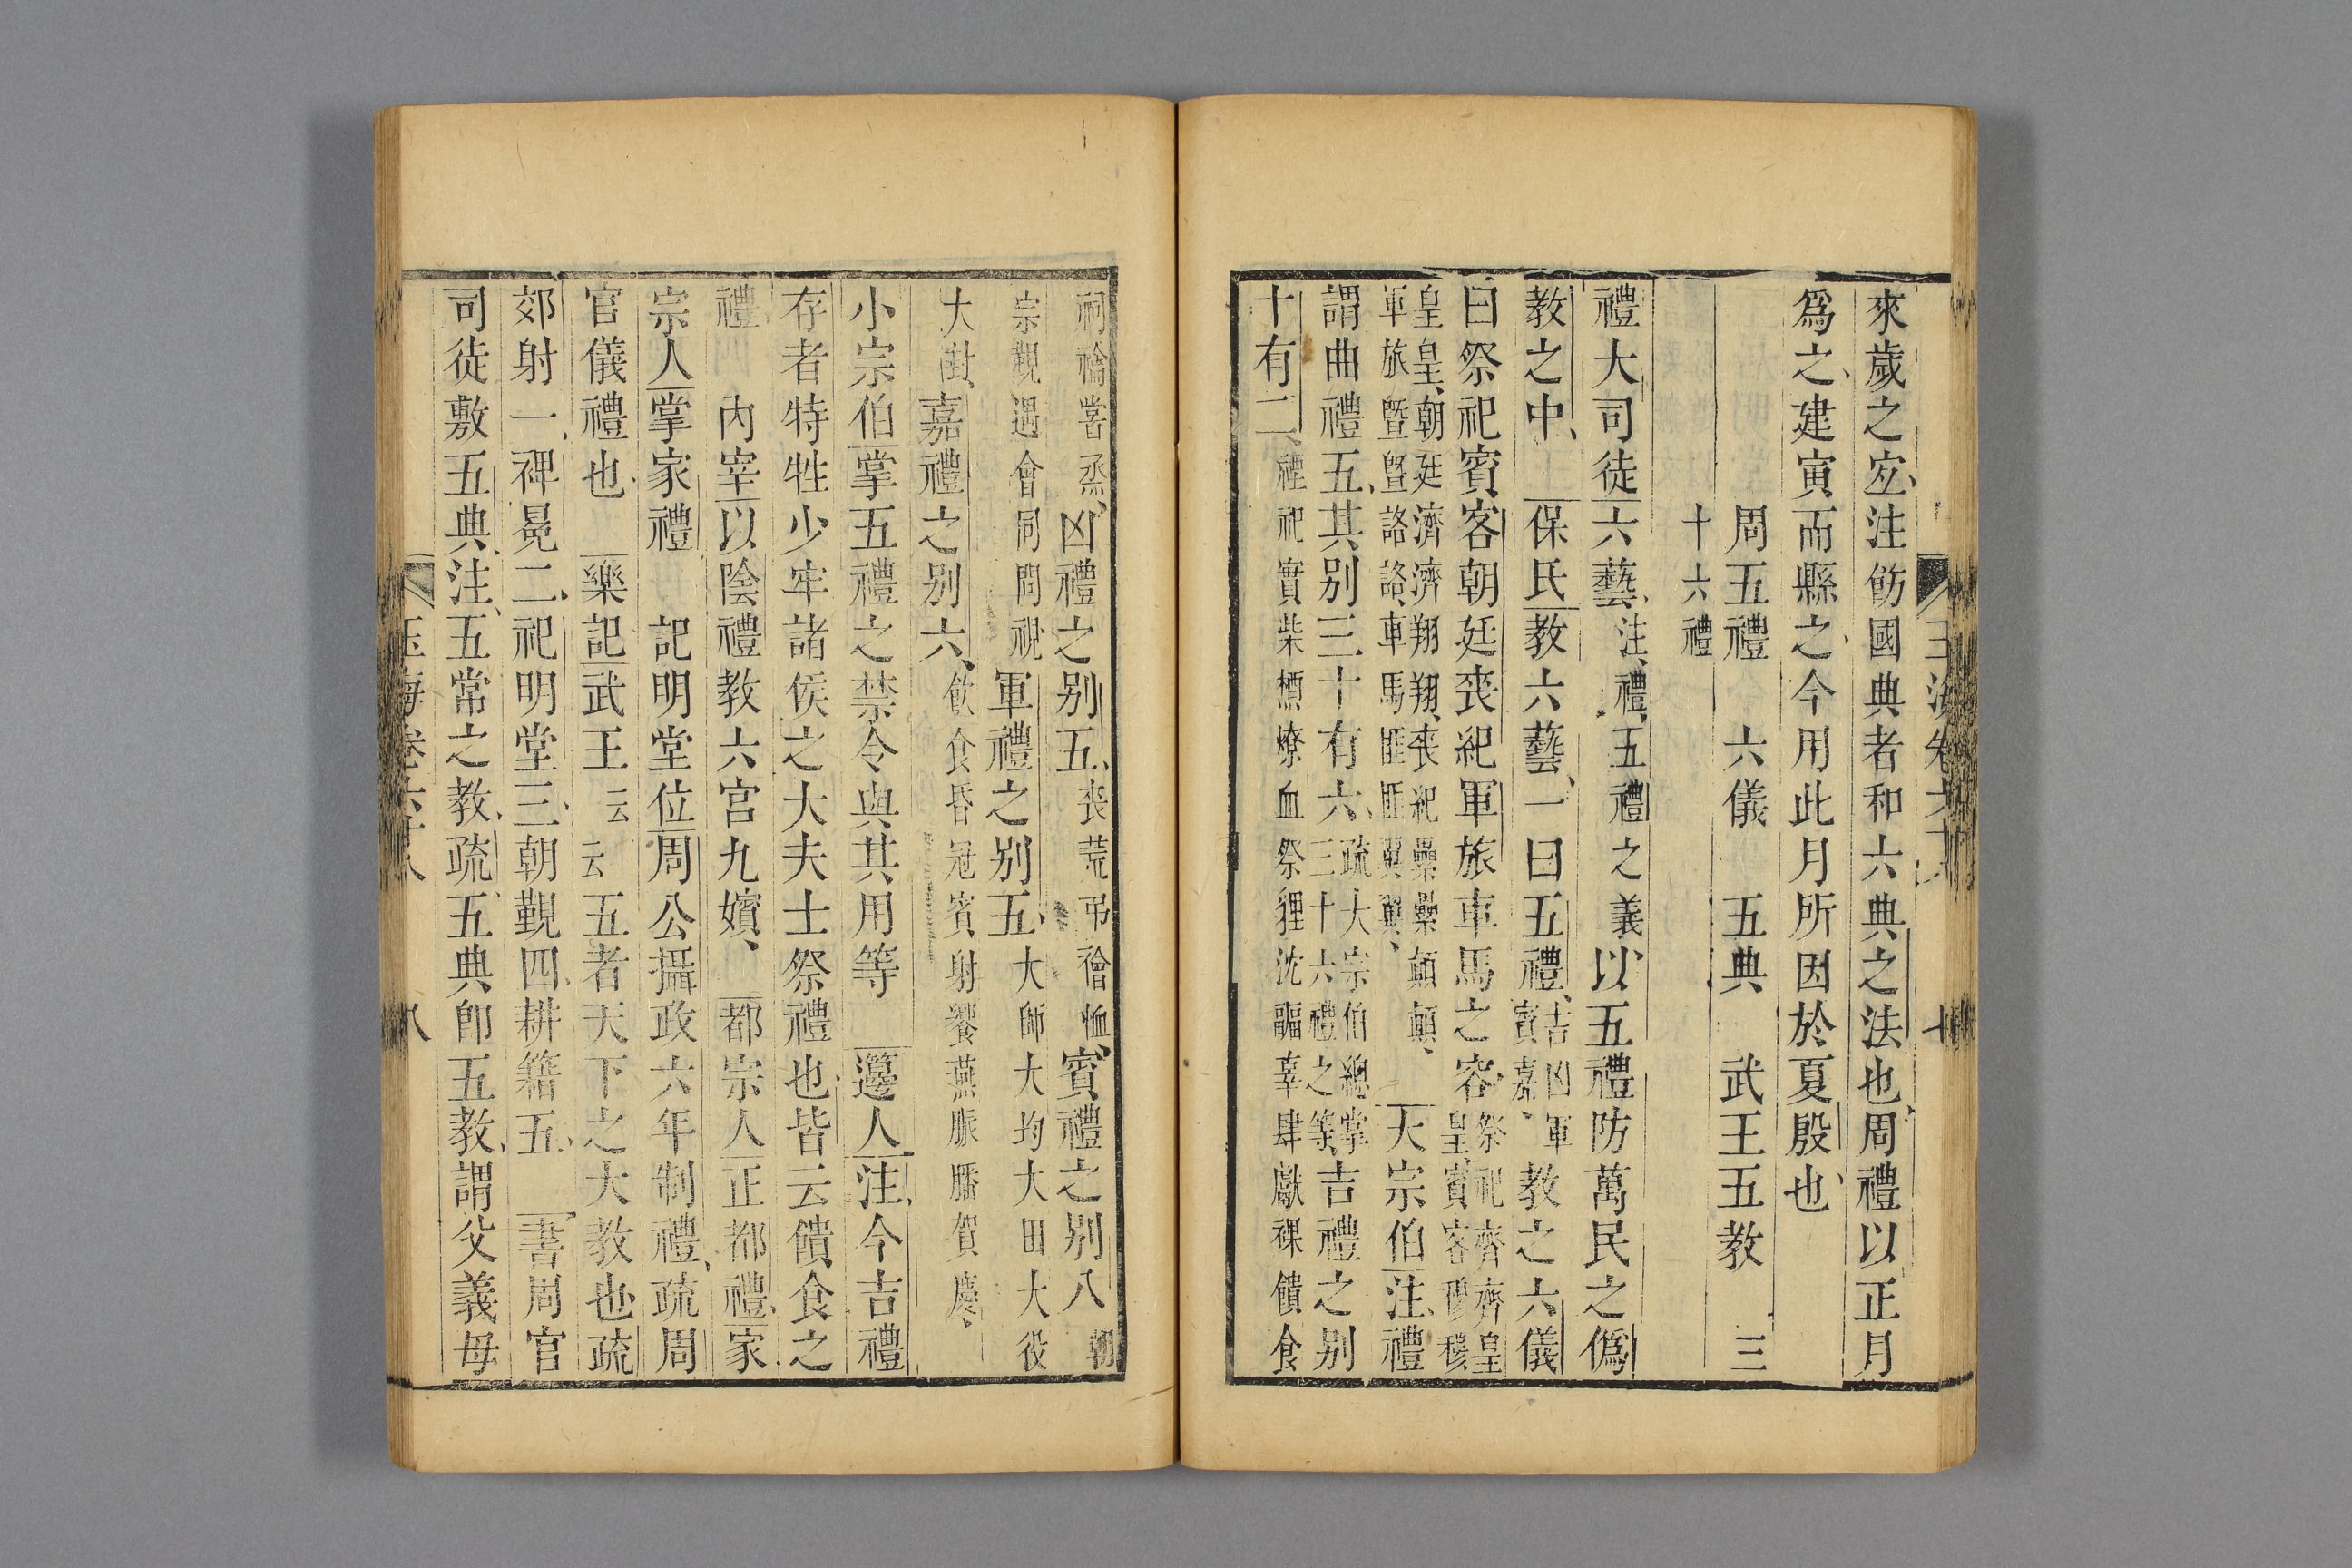 來歲之宜注飭國典者和六典之法也周禮以正月
爲之建寅而縣之今用此月所因於夏殷也
周五禮 六儀 五典 武王五教 三
十六禮
禮大司徒六藝注禮五禮之義以五禮防萬民之僞
教之中 保氏教六藝一曰五禮吉凶軍賓嘉教之六儀
曰祭祀賓客朝廷喪紀軍旅車馬之容祭祀齊齊皇皇賓客穆穆
皇皇朝廷濟濟翔翔喪紀纍纍顛顛軍旅曁曁詻詻車馬匪匪翼翼 大宗伯注禮
謂曲禮五其别三十有六疏大宗伯總掌三十六禮之等吉禮之别
十有二禋祀實柴槱燎血祭狸沈疈辜肆獻祼饋食
祠禴嘗烝凶禮之别五喪荒弔禬恤賓禮之别八朝
宗覲遇會同問視軍禮之别五大師大均大田大役
大封嘉禮之别六飮食昏冠賓射饗燕脤膰賀慶
小宗伯掌五禮之禁令與其用等 籩人注今吉禮
存者特牲少牢諸侯之大夫士祭禮也皆云饋食之
禮 內宰以陰禮教六宮九嬪 都宗人正都禮家
宗人掌家禮 記明堂位周公攝政六年制禮疏周
官儀禮也 樂記武王云云五者天下之大教也疏
郊射一裨冕二祀明堂三朝覲四耕籍五 書周官
司徒敷五典注五常之教疏五典卽五教謂父義母
玉海卷六十八 八